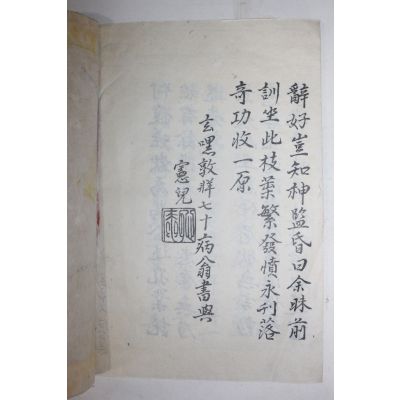 辭好豈知神監昏曰余昧前
訓坐此枝葉繁發憤永刊落
奇功收一原
玄默敦牂七十病翁書與
憲兒